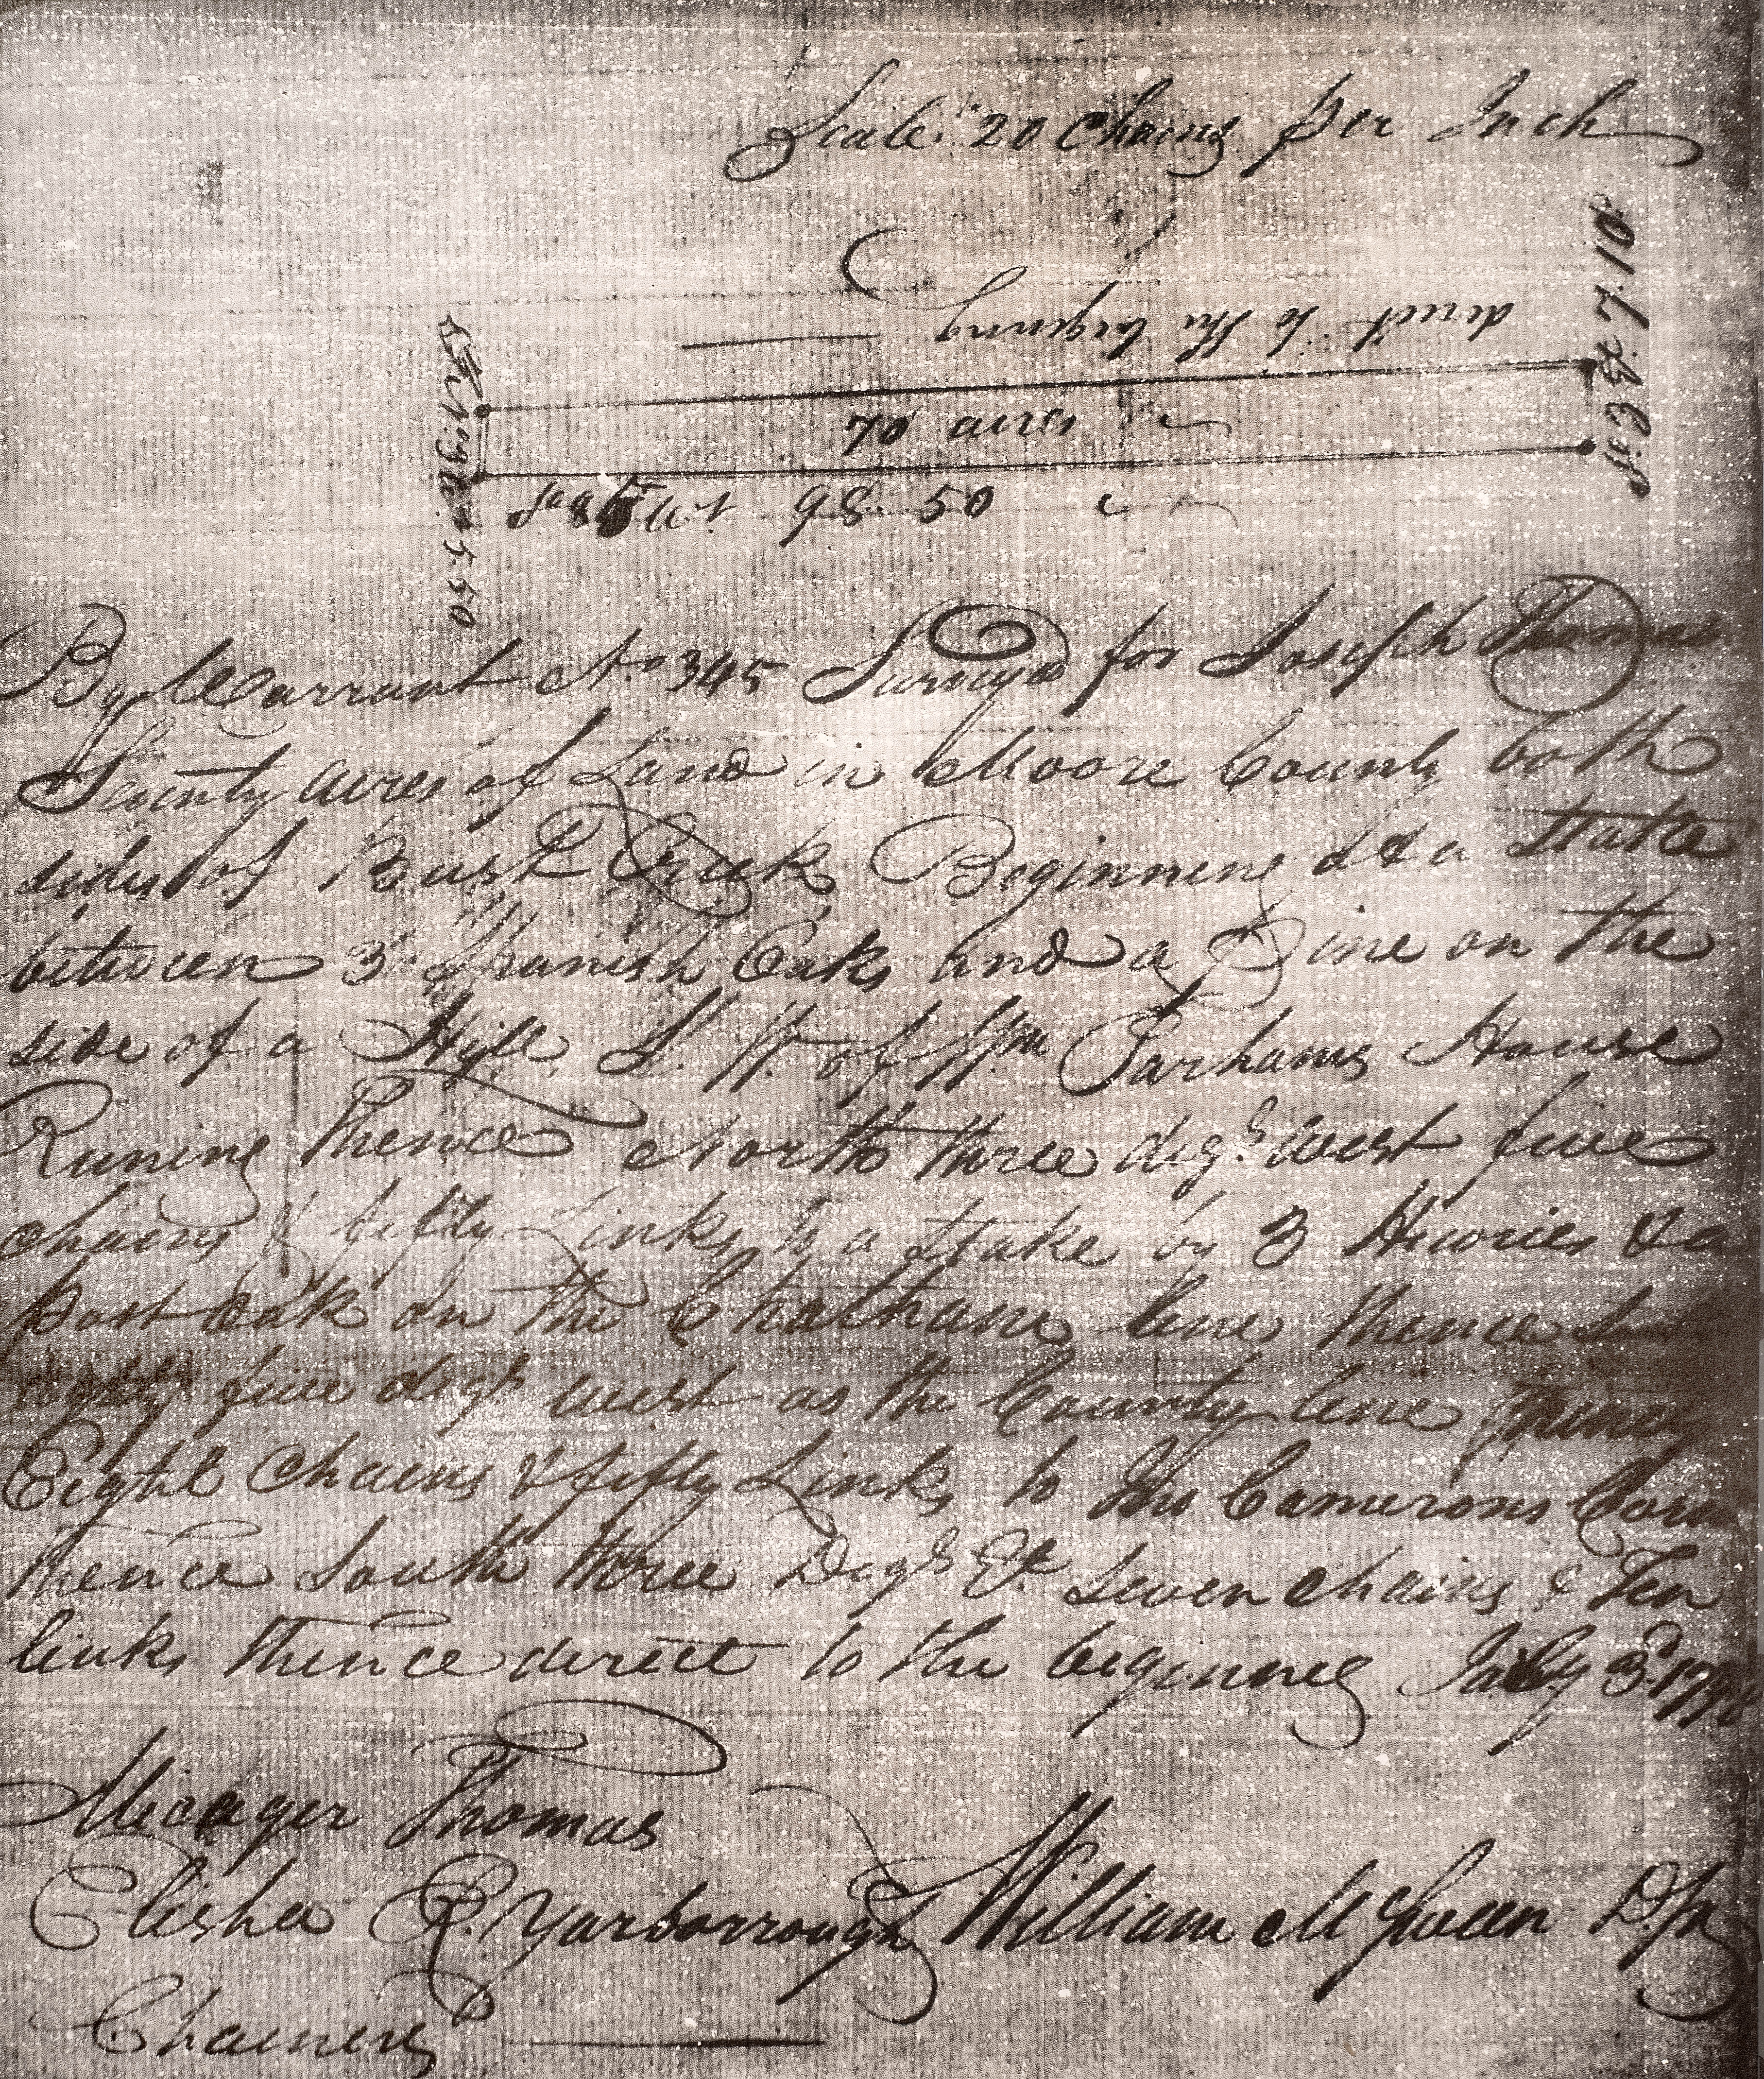 Scale 20 Chains per Inch
S 3 E 7. 10
direct to the begening
70 acres
98. 50
5. 50
By Warrant No 345 Survey'd for Joseph Thomas
Seventy acres of Land in Moore County both
sides of Creek Beginning at a Stake
between 3 Spanish Oaks and a Pine on the
side of a Hill S. W. of Wm Parhams House
Runing Thence North three degs west five
chains & fifty Links to a Stake by 3 &
post oak on the Chatham line thence
five degs west as the County line
Eight Chains & fifty Links to Camerons
thence South three Degs Et seven chains & Ten
links thence direct to the begenning July 3d
Micager Thomas
Elisha R. Yarborrough William McQueen
Chainers